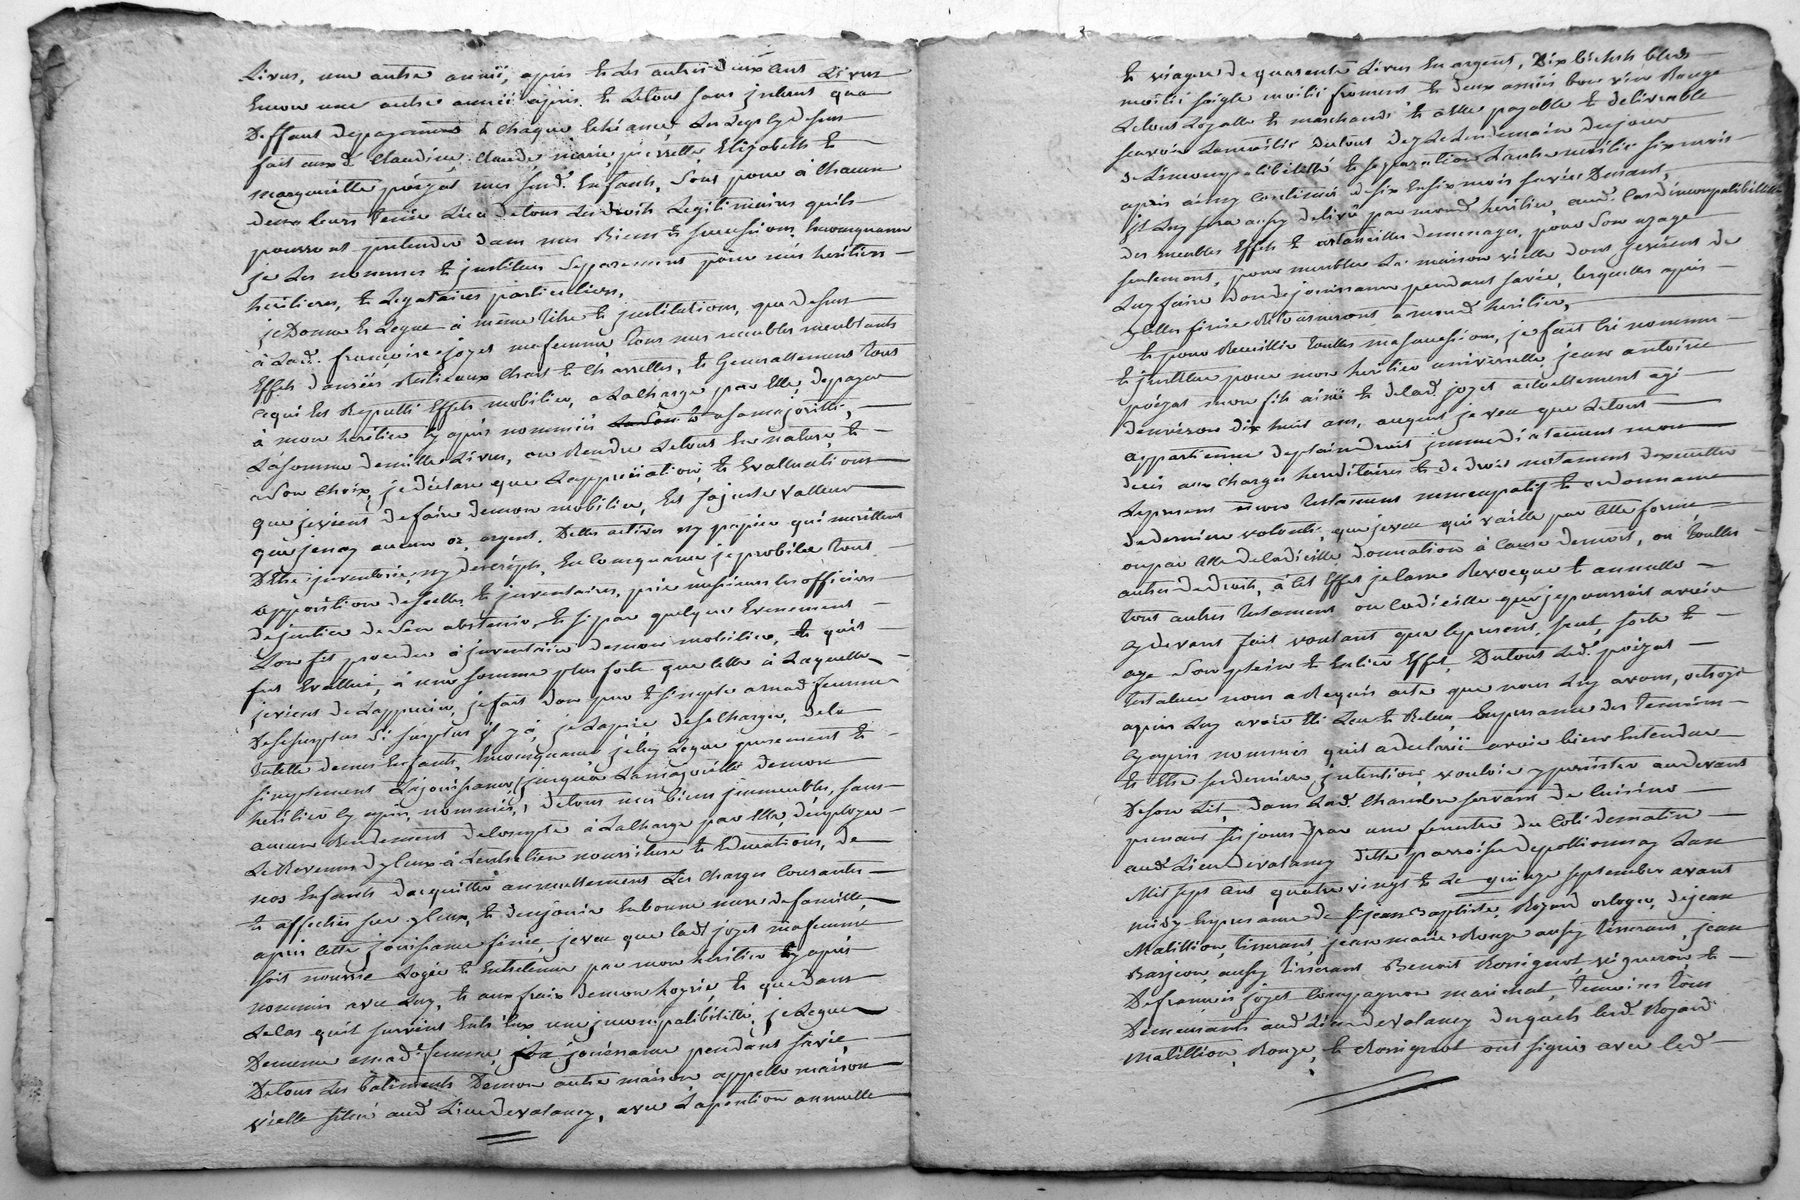 Livres, une autre année, après et les autres deux cent Livres
Encore une autre année après. et Letout sans jnterest qua
Deffaut depayement à chaque Echéance, Les Legs cydessus
fait auxd. Claudine, Claude marie, pierrette Elizabeth et
margueritte poizat, mes susd. Enfants, Sont pour à Chacun
deux Leurs Tenir Lieu detous Lesdroits Legitimaires quils
pourront pretendre dans mes Biens et succession. Enconsequence
je Les nommes et jnstitues Sepparement pour mes heritiers
heritieres, et Legataires particuliers.
jeDonne et Legue à même titre et jnstitutions, que dessus
à Lad. françoise jozet mafemme tous mes meubles meublants
Effets danrées Bestieaux Chart et Charrettes, et Generallement tout
cequi Est Reputté Effets mobilier, alacharge par Elle, depayer
à mon heritier cy après nommée asamajoritté,
Lasomme demille Livres, ou Rendre Letout En nature, et
aSon choix, jedéclare que Lappréciation, et Evalluations
que jeviens defaire demon mobilier, Est Sajuste valleur
que jenay aucun or, argent. Dettes actives ny papier qui merittent
Dêtre jnventoriés, ny descripts, En Consequence jeprohibe tout
apposition deScelles, et jnventaires, prie messieurs les officiers
dejustice de Sen abstenir, et sy par quelque Evenement
Lon fit proceder à jnventaire demon mobilier, et quil
fut Evallué, à une somme plus forte que celle à Laquelle
jeviens deLapprecier, jefait don pur et simple amad. femme
Decesurplus Si surplus jl y à, jeLaprie dese charger, dela
tutelle demes Enfants, Enconsequence jeluy Legue purement et
simplement Lajouissance jusqua Lamajoritté demon
heritier cy après nommée, detous mes biens jmmeubles, sans
aucun Rendement decompte àLacharge par Elle, demployer
LeRevenus dyCeux à Lentretien nourriture et Educations, de
nos Enfants dacquitter annuellement Les charges Courantes
et affectées sur yCeux, et denjouir En bonne mere defamille,
après Cette jouissance finie, jeveu que lad. jozet mafemme
soit nourrie Logée et Entretenue par mon heritier cy après
nommée avec Luy, et aux fraix demon hoyrie, et quedans
Lecas quil survint Entr'Eux une jncompatibilitté, jeLegue
Demême amad. femme, La jouissance pendant savie,
Detous Les Batiments Demon autre maison appellé maison
vieille situé aud. Lieu devalancy, avec Lapention annuelle
et viagere de quarante Livres En argent, Dix bichets bleds
moitié seigle moitié froment et deux années bon vin Rouge
Letout Loyalle et marchand et Elle payable et deliverable
scavoir Lamoitié dutout dez Le Lendemain dujour
de Lincompatibilitté et sepparation Lautre moitié six mois
après ainsy Continué desix Ensix mois savie Durant,
jl Luy sera aussy délivré par mond. heritier, aud. Cas d'jncompatibilitté
des meubles Effets et ostancilles demenages, pour Son usage
seulement, pour meubler La maison vieille dont jeviens de
Luy faire don dejouissance pendant savie, lesquelles après
yCelles finie Retourneront à mond. heritier,
et pour Recuillir touttes masuccession, je fait Cré nomme
et jnstitue pour mon heritier universelle, jean antoine
poizat mon fils ainé et delad. jozet actuellement agé
denviron dix huit ans, auquel je veu que Letout
appartienne deplain droit jmmediatement mon
décès aux charges hereditaires et de droit notament dexecutter
Lepresent mon testament nuncupatif et ordonnance
dederniere volonté, que jeveu qui vaille par cette forme
ou par Celle decodicille donnation à Cause demort, ou touttes
autres de droit, à Cet Effet jeCasse Revocque et annulle
tout autres testament ou Codicille que jepourrois avoir
cydevant fait voulant que lepresent, seul, sorte et
aye Son plein et Entier Effet, Dutout Led. poizat
testateur nous aRequis acte que nous Luy avons, octroyé
après Luy avoir Eté Leu et Releu, En presence des temoins
cyaprès nommés quil adeclaré avoir bien Entendue
et être saderniere jntention, vouloir y persister audevant
Deson Lit, dans Lad. Chambre servant de Cuisine
prenant ses jours par une fenestre du Coté dematin
aud. Lieu devalancy ditte parroisse depollionnay Lan
Mil sept Cent quatre vingt et Le quinze septembre avant
midy En presence de Sr. jean Baptiste, Royard orloger, dejean
Matillion, tisserant, jean marie Rouge aussy tisserant, jean
Barjon, aussy tisserant Benoit Rossignol, vigneron, et
Defrancois jozet Compagnon marechal, temoins tous
Demeurants aud. Lieu devalancy desquels Lesd. Royard
Matillion, Rouge, et Rossignol ont signés avec Led.